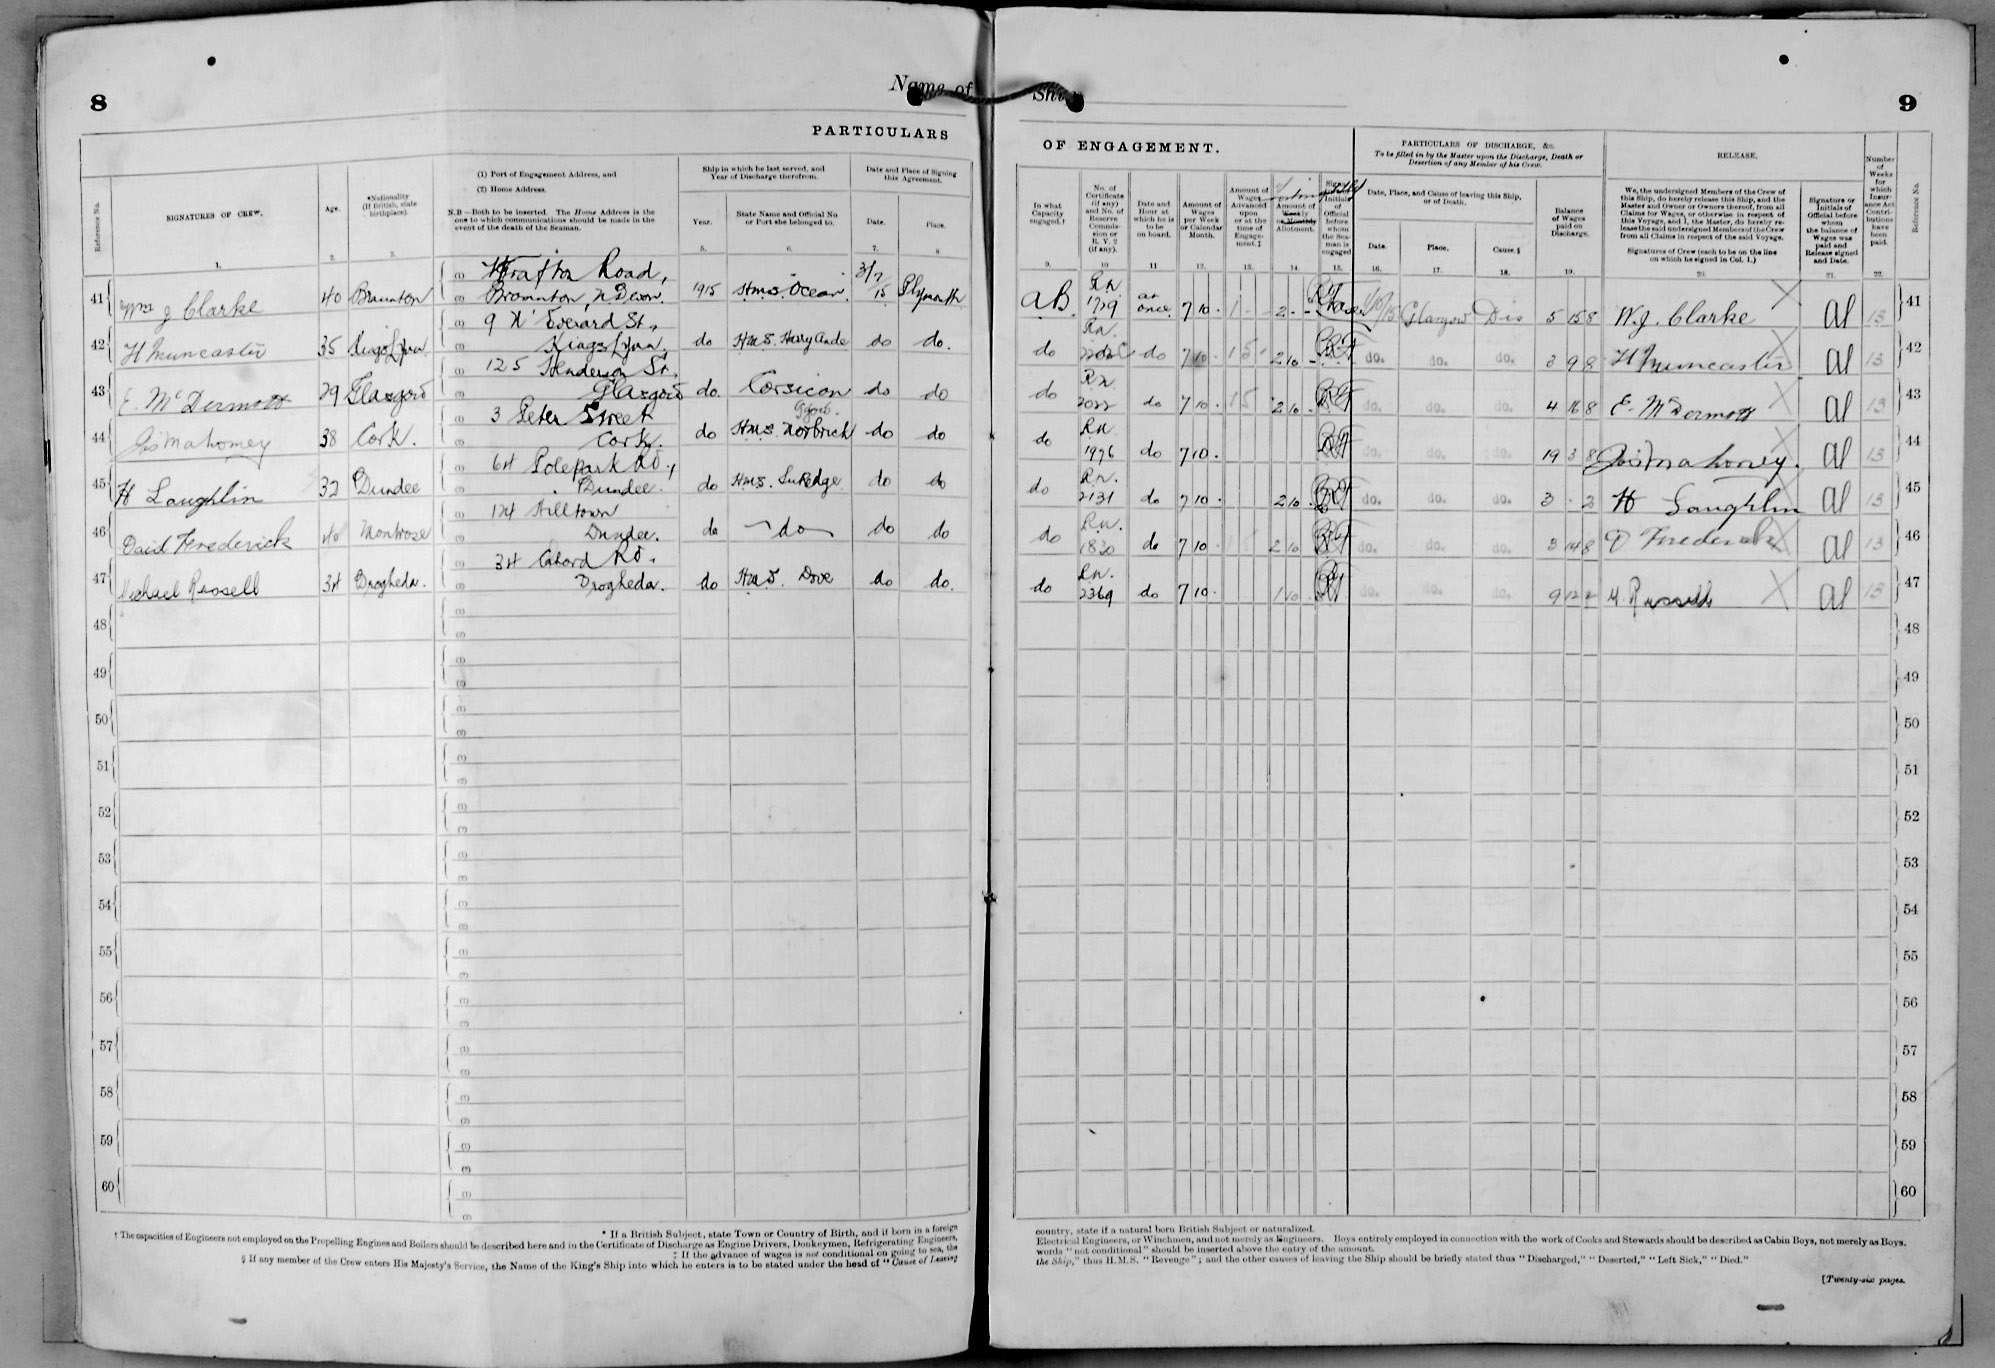 8
Name of
PARTICULARS
Reference No.
SIGNATURES OF CREW.
Age.
*Nationality
(If British, state
birthplace).
(1) Port of Engagement Address, and
(2) Home Address.
N.B.—Both to be inserted. The Home Address is the
one to which communications should be made in the
event of the death of the Seaman.
Ship in which he last served, and
Year of Discharge therefrom.
Year.
State Name and Official No.
or Port she belonged to.
Date and Place of Signing
this Agreement.
Date.
Place.
1. 2. 3. 5. 6. 7. 8
41 Wm J Clarke 40 Braunton Road, Braunton, N. Devon. 1915 H.M.S. Ocean. 3/7/15 Plymouth
42 H Muncaster 35 Kings Lynn 9 Everard St., Kings Lynn, do H.M.S. do do.
43 E. McDermott 29 Glasgow 125 Henderson St. Glasgow do. Corsican do do
44 Jas Mahoney 38 Cork. 3 Peter Street Cork. do H.M.S. do do
45 H Laughlin 32 Dundee 64 Polepark Rd., Dundee. do H.M.S. do do
46 David Frederick 40 Montrose 124 Hilltown Dundee. do do do do
47 Michael Russell 34 Drogheda. 34 Rd. Drogheda. do H.M.S. Dove do do.
48
49
50
51
52
53
54
55
56
57
58
59
60
* If a British Subject, state Town or Country of Birth, and if born in a foreign
† The capacities of Engineers not employed on the Propelling Engines and Boilers should be described here and in the Certificate of Discharge as Engine Drivers, Donkeymen, Refrigerating Engineers,
‡ If the advance of wages is not conditional on going to sea, the
§ If any member of the Crew enters His Majesty's Service, the Name of the King's Ship into which he enters is to be stated under the head of "Cause of Leaving
9
OF ENGAGEMENT.
In what
Capacity
engaged.†
No. of
Certificate
(if any)
and No. of
Reserve
Commis-
sion or
R. V. 2
(if any).
Date and
Hour at
which he is
to be
on board.
Amount of
Wages
per Week
or Calendar
Month.
Amount of
Wages
Advanced
upon
or at the
time of
Engage-
ment.‡
Amount of
Weekly
or Monthly
Allotment.
Initials
of
Official
before
whom
the Sea-
man is
engaged
PARTICULARS OF DISCHARGE, &c.
To be filled in by the Master upon the Discharge, Death or
Desertion of any Member of his Crew.
Date, Place, and Cause of leaving this Ship,
or of Death.
Date.
Place.
Cause.§
Balance
of Wages
paid on
Discharge.
RELEASE.
We, the undersigned Members of the Crew of
this Ship, do hereby release this Ship, and the
Master and Owner or Owners thereof, from all
Claims for Wages, or otherwise in respect of
this Voyage, and I, the Master, do hereby re-
lease the said undersigned Members of the Crew
from all Claims in respect of the said Voyage.
Signatures of Crew (each to be on the line
on which he signed in Col. 1.)
Signature or
Initials of
Official before
whom
the balance of
Wages was
paid and
Release signed
and Date.
Number
of
Weeks
for
which
Insur-
ance Act
Contri-
butions
have
been
paid.
Reference No.
9. 10 11 12. 13. 14. 15. 16. 17. 18. 19. 20. 21. 22.
AB. RN 1779 at once. 7 10 2 Glasgow Dis 5 15 8 W.J. Clarke 13 41
do RN do 7 10 2 10 do. do. do. 3 9 8 H Muncaster 13 42
do RN 2022 do 7 10 2 10 do. do. do. 4 16 8 E. McDermott 13 43
do RN 1976 do 7 10 do. do. do. 19 3 8 Jas Mahoney. 13 44
do RN. 2131 do 7 10 2 10 do. do. do. 3 H Laughlin 13 45
do RN. 1830 do 7 10 2 10 do. do. do. 3 14 8 D Frederick 13 46
do RN. 2369 do 7 10 1 10 do. do. do. 9 12 2 M Russell 13 47
48
49
50
51
52
53
54
55
56
57
58
59
60
country, state if a natural born British Subject or naturalized.
Electrical Engineers, or Winchmen, and not merely as Engineers. Boys entirely employed in connection with the work of Cooks and Stewards should be described as Cabin Boys, not merely as Boys.
words "not conditional" should be inserted above the entry of the amount.
the Ship," thus H.M.S. "Revenge"; and the other causes of leaving the Ship should be briefly stated thus "Discharged," "Deserted," "Left Sick," "Died."
[Twenty-six pages.